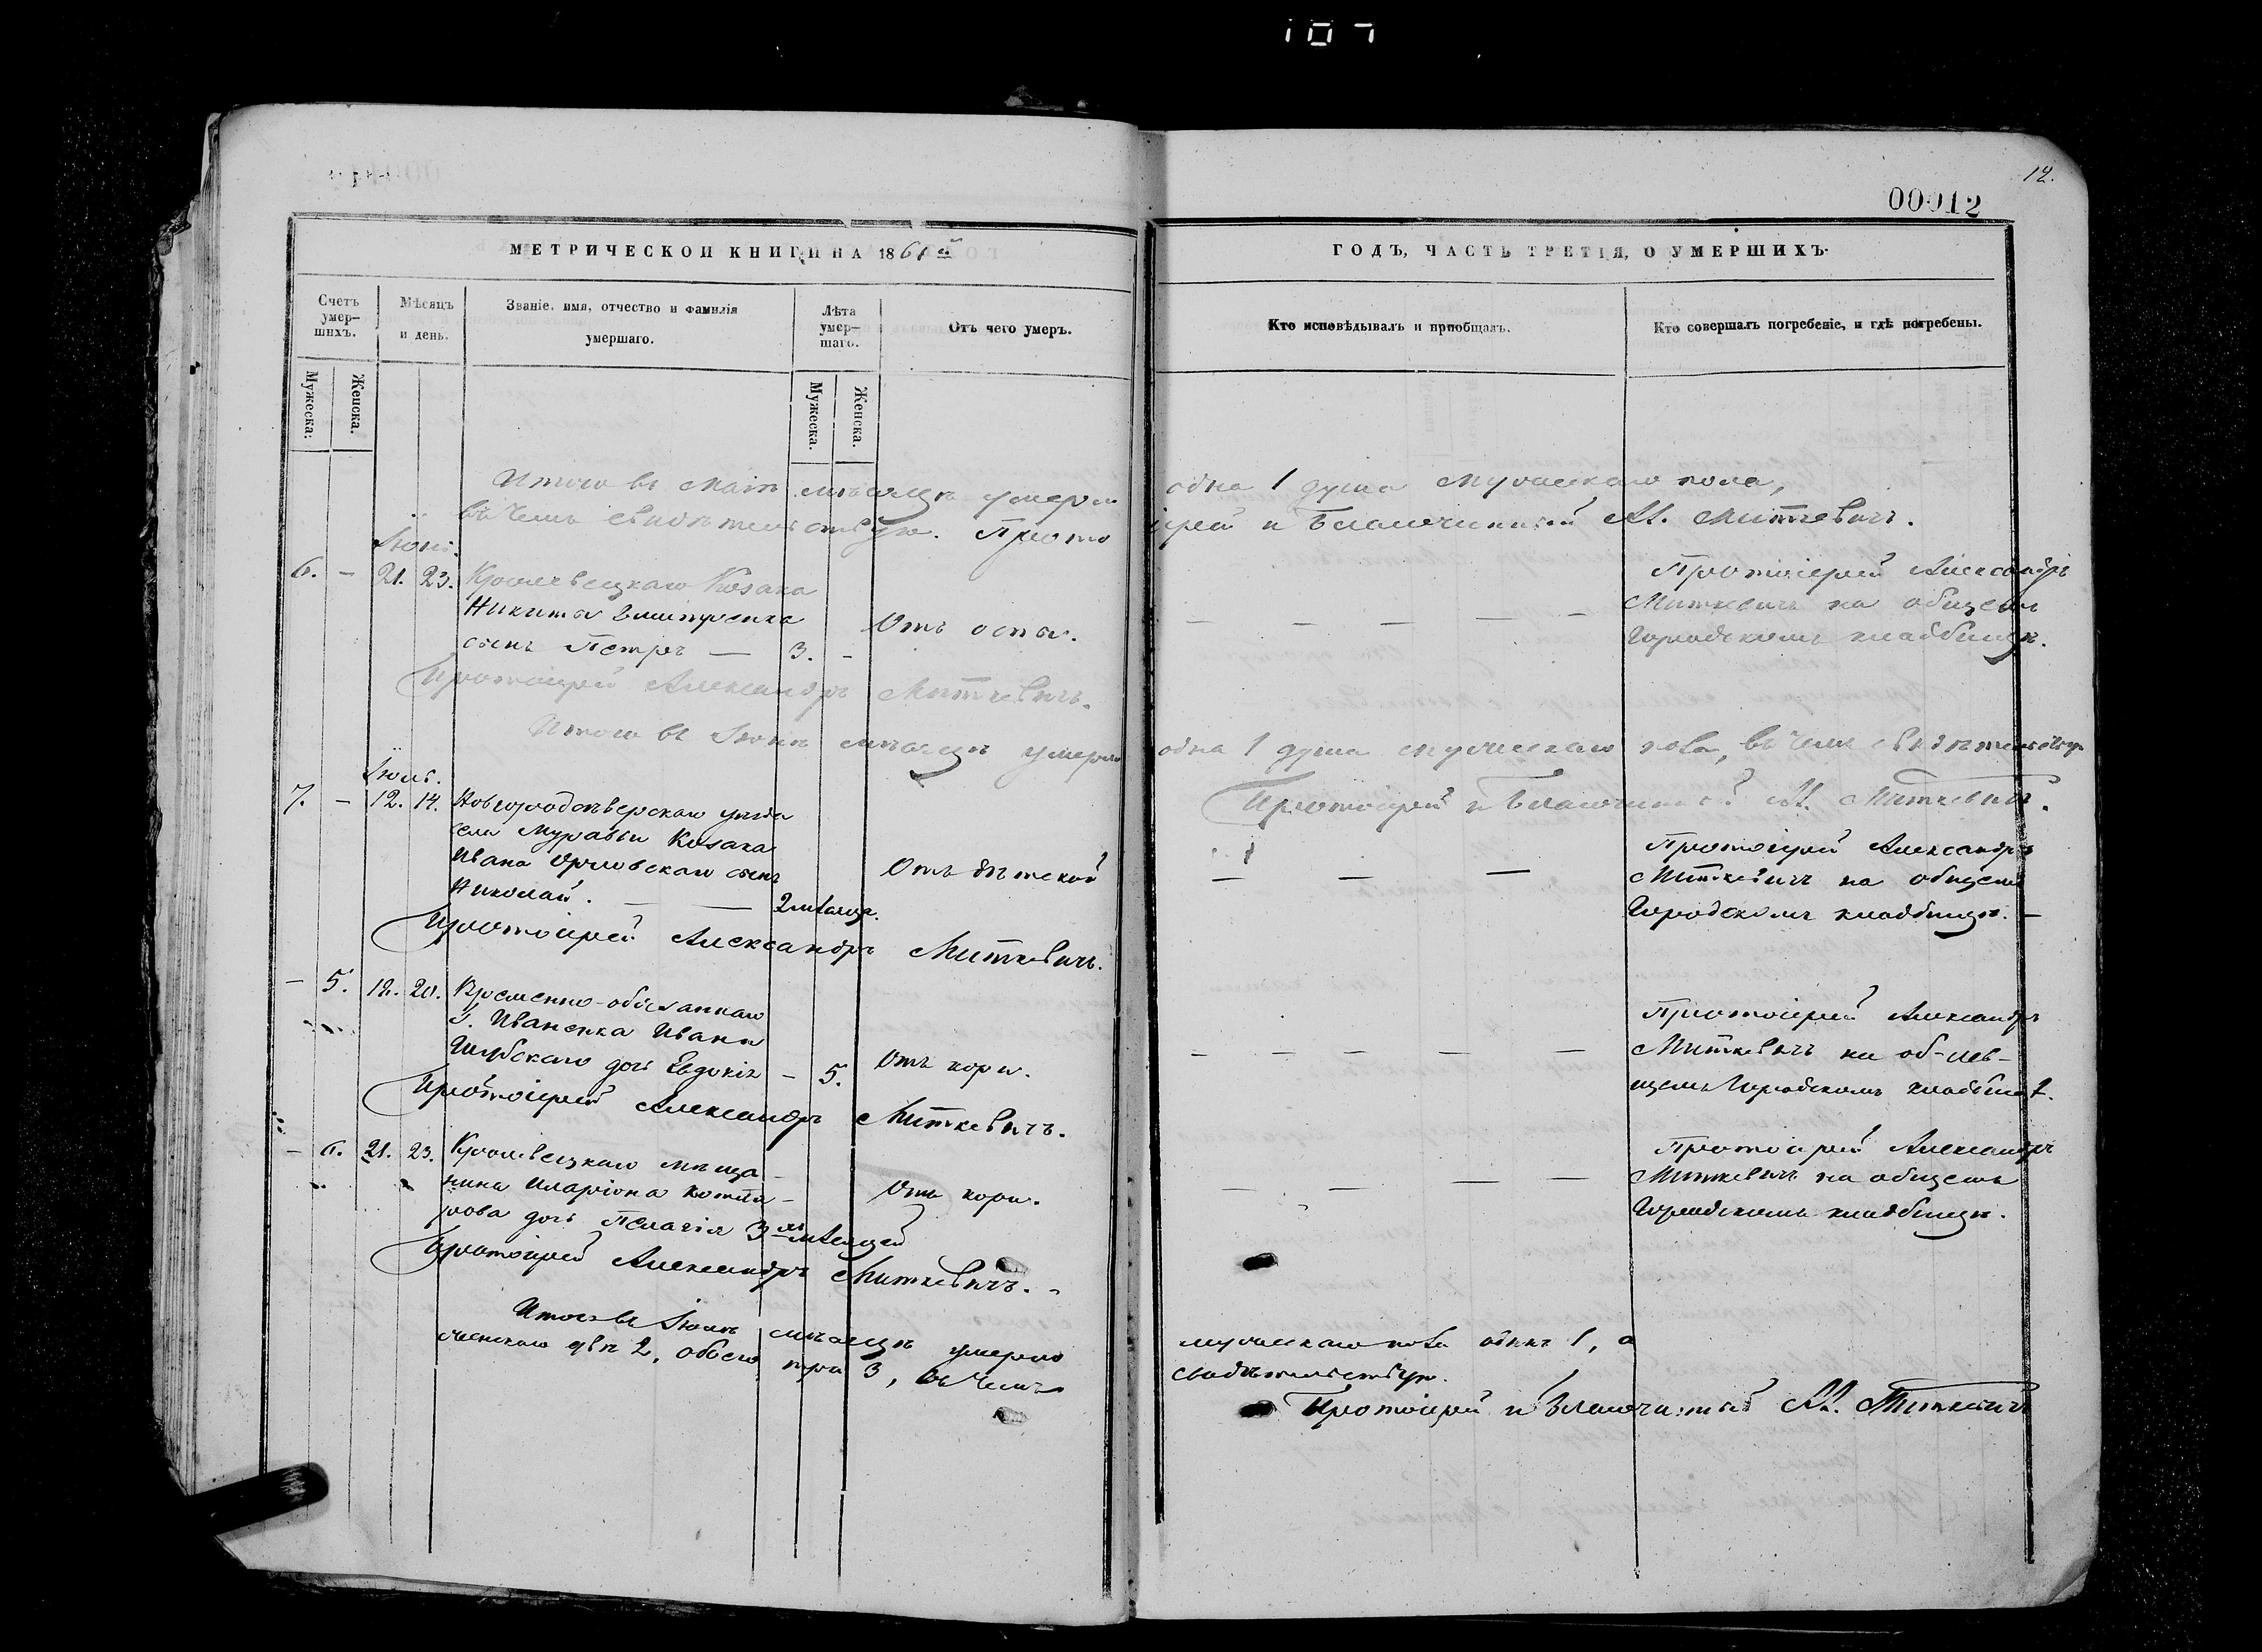 107
12.
00012
МЕТРИЧЕСКОЙ КНИГИ НА 1861й
ГОДЪ, ЧАСТЬ ТРЕТІЯ, О УМЕРШИХЪ.
Счетъ умер-шихъ.
Мужеска:
Женска.
Мѣсяцъ и день.
Званіе, имя, отчество и фамилія умершаго.
Лѣта умер-шаго.
Мужеска.
Женска.
Отъ чего умеръ.
Кто исповѣдывалъ и пріобщалъ.
Кто совершалъ погребеніе, и гдѣ погребены.
Итого въ Маіи мѣсяцѣ умерла одна 1 душа мужескаго пола,
въ чемъ свидѣтельствую. Протоіерей и Благочинный Ал. Миткевичъ.
Іюнь.
6. – 21. 23. Кролевецкаго Козака
Никиты Дмитренка
сынъ Петръ — 3. –
Отъ оспы.
Протоіерей Александръ
Миткевичъ на общемъ
Городскомъ кладбищѣ.
Протоіерей Александръ Миткевичъ.
Итого въ Іюнѣ мѣсяцѣ умерла одна 1 душа мужескаго пола, въ чемъ свидѣтельствую
Протоіерей и Благочинный Ал. Миткевичъ.
Іюль.
7. – 12. 14. Новгородсѣверскаго уѣзда
села Муравьи Козака
Ивана Орловскаго сынъ
Николай. — — 2 мѣсяца.
Отъ дѣтской
Протоіерей Александръ
Миткевичъ на общемъ
Городскомъ кладбищѣ. –
Протоіерей Александръ Миткевичъ.
– 5. 18. 20. Временно-обязаннаго
г. Иваненка Ивана
дочь Евдокія – 5.
Отъ кори.
Протоіерей Александръ
Миткевичъ на об-
щемъ Городскомъ кладбищѣ.
Протоіерей Александръ Миткевичъ.
– 6. 21. 23. Кролевецкаго мѣща-
нина Иларіона Котля-
рова дочь Пелагія 3хъ мѣсяцей
Отъ кори.
Протоіерей Александръ
Миткевичъ на общемъ
Городскомъ кладбищѣ.
Протоіерей Александръ Миткевичъ. –
Итого въ Іюлѣ мѣсяцѣ умерло мужескаго пола одинъ 1, а
женскаго двѣ 2, обоего три 3, въ чемъ свидѣтельствую.
Протоіерей и Благочинный Ал. Миткевичъ